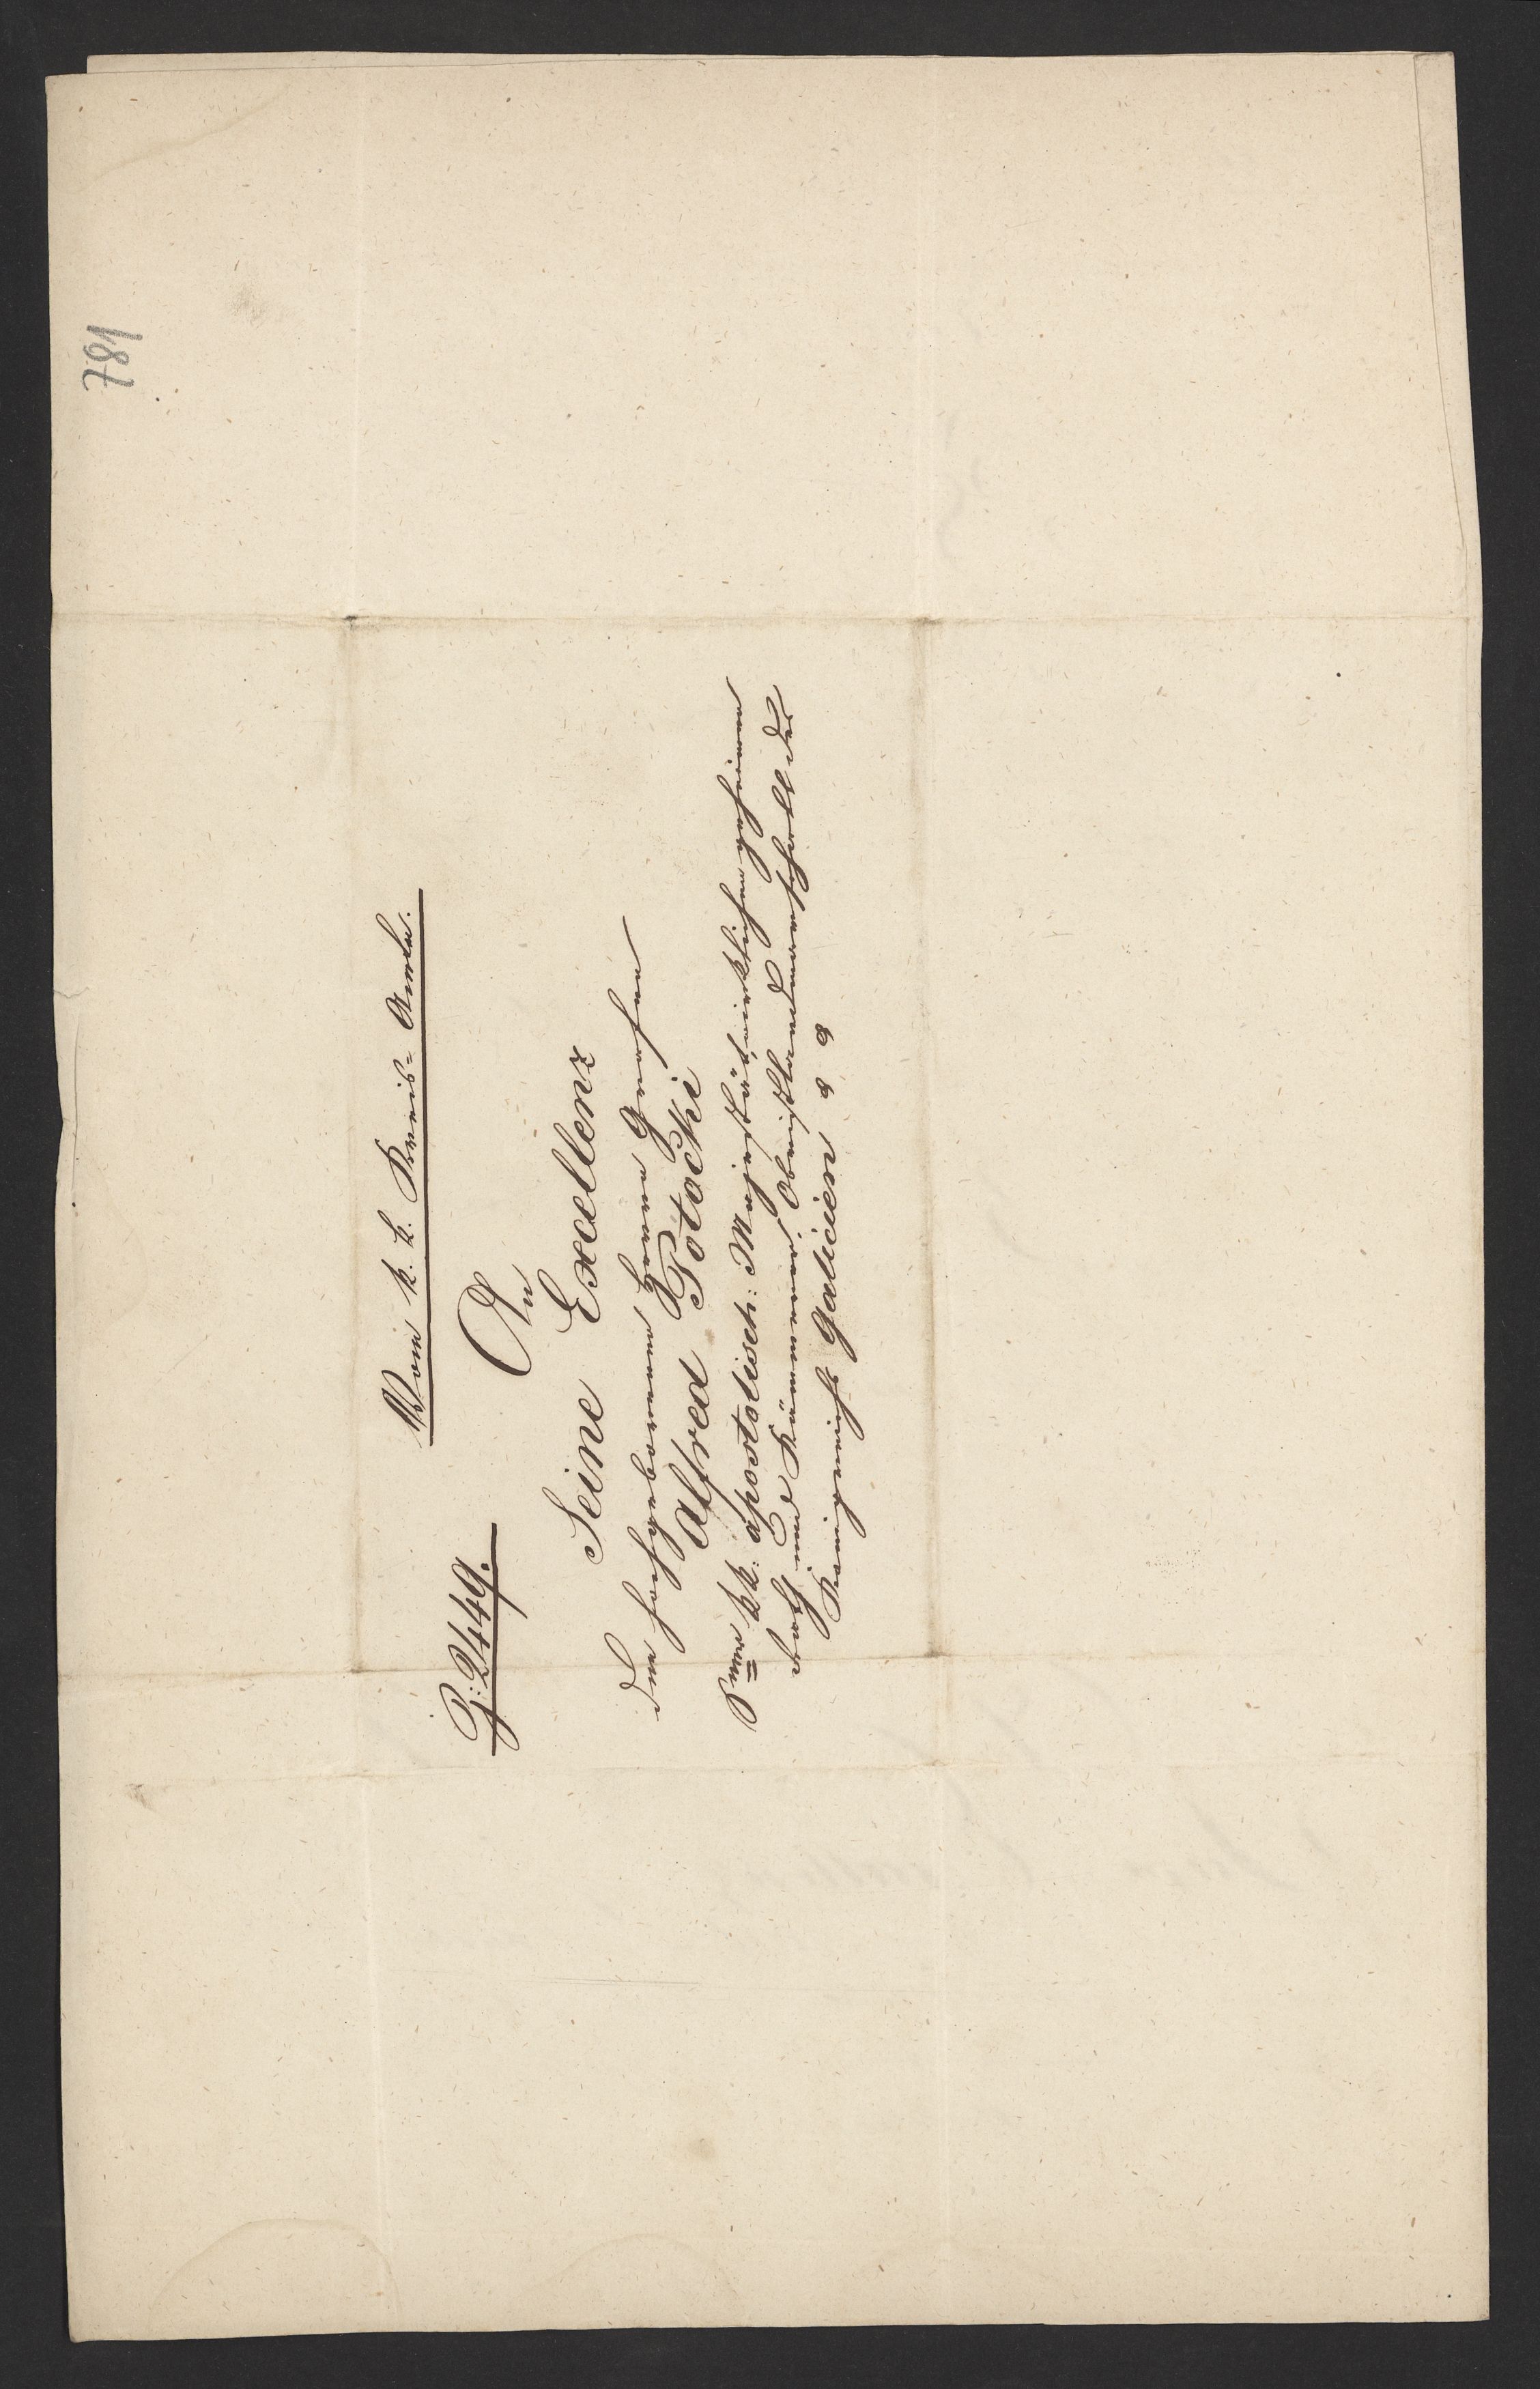 187
Vom k. k. Kreis-Amte.
Z: 2449.
An
Seine Excellenz
den hochgebornen Herrn Grafen
Alfred Potocki
kk: apostolisch: Majestät wirklichen geheimen
Rath und Kämmerer Obristlandmarschall des
Königreichs Galicien